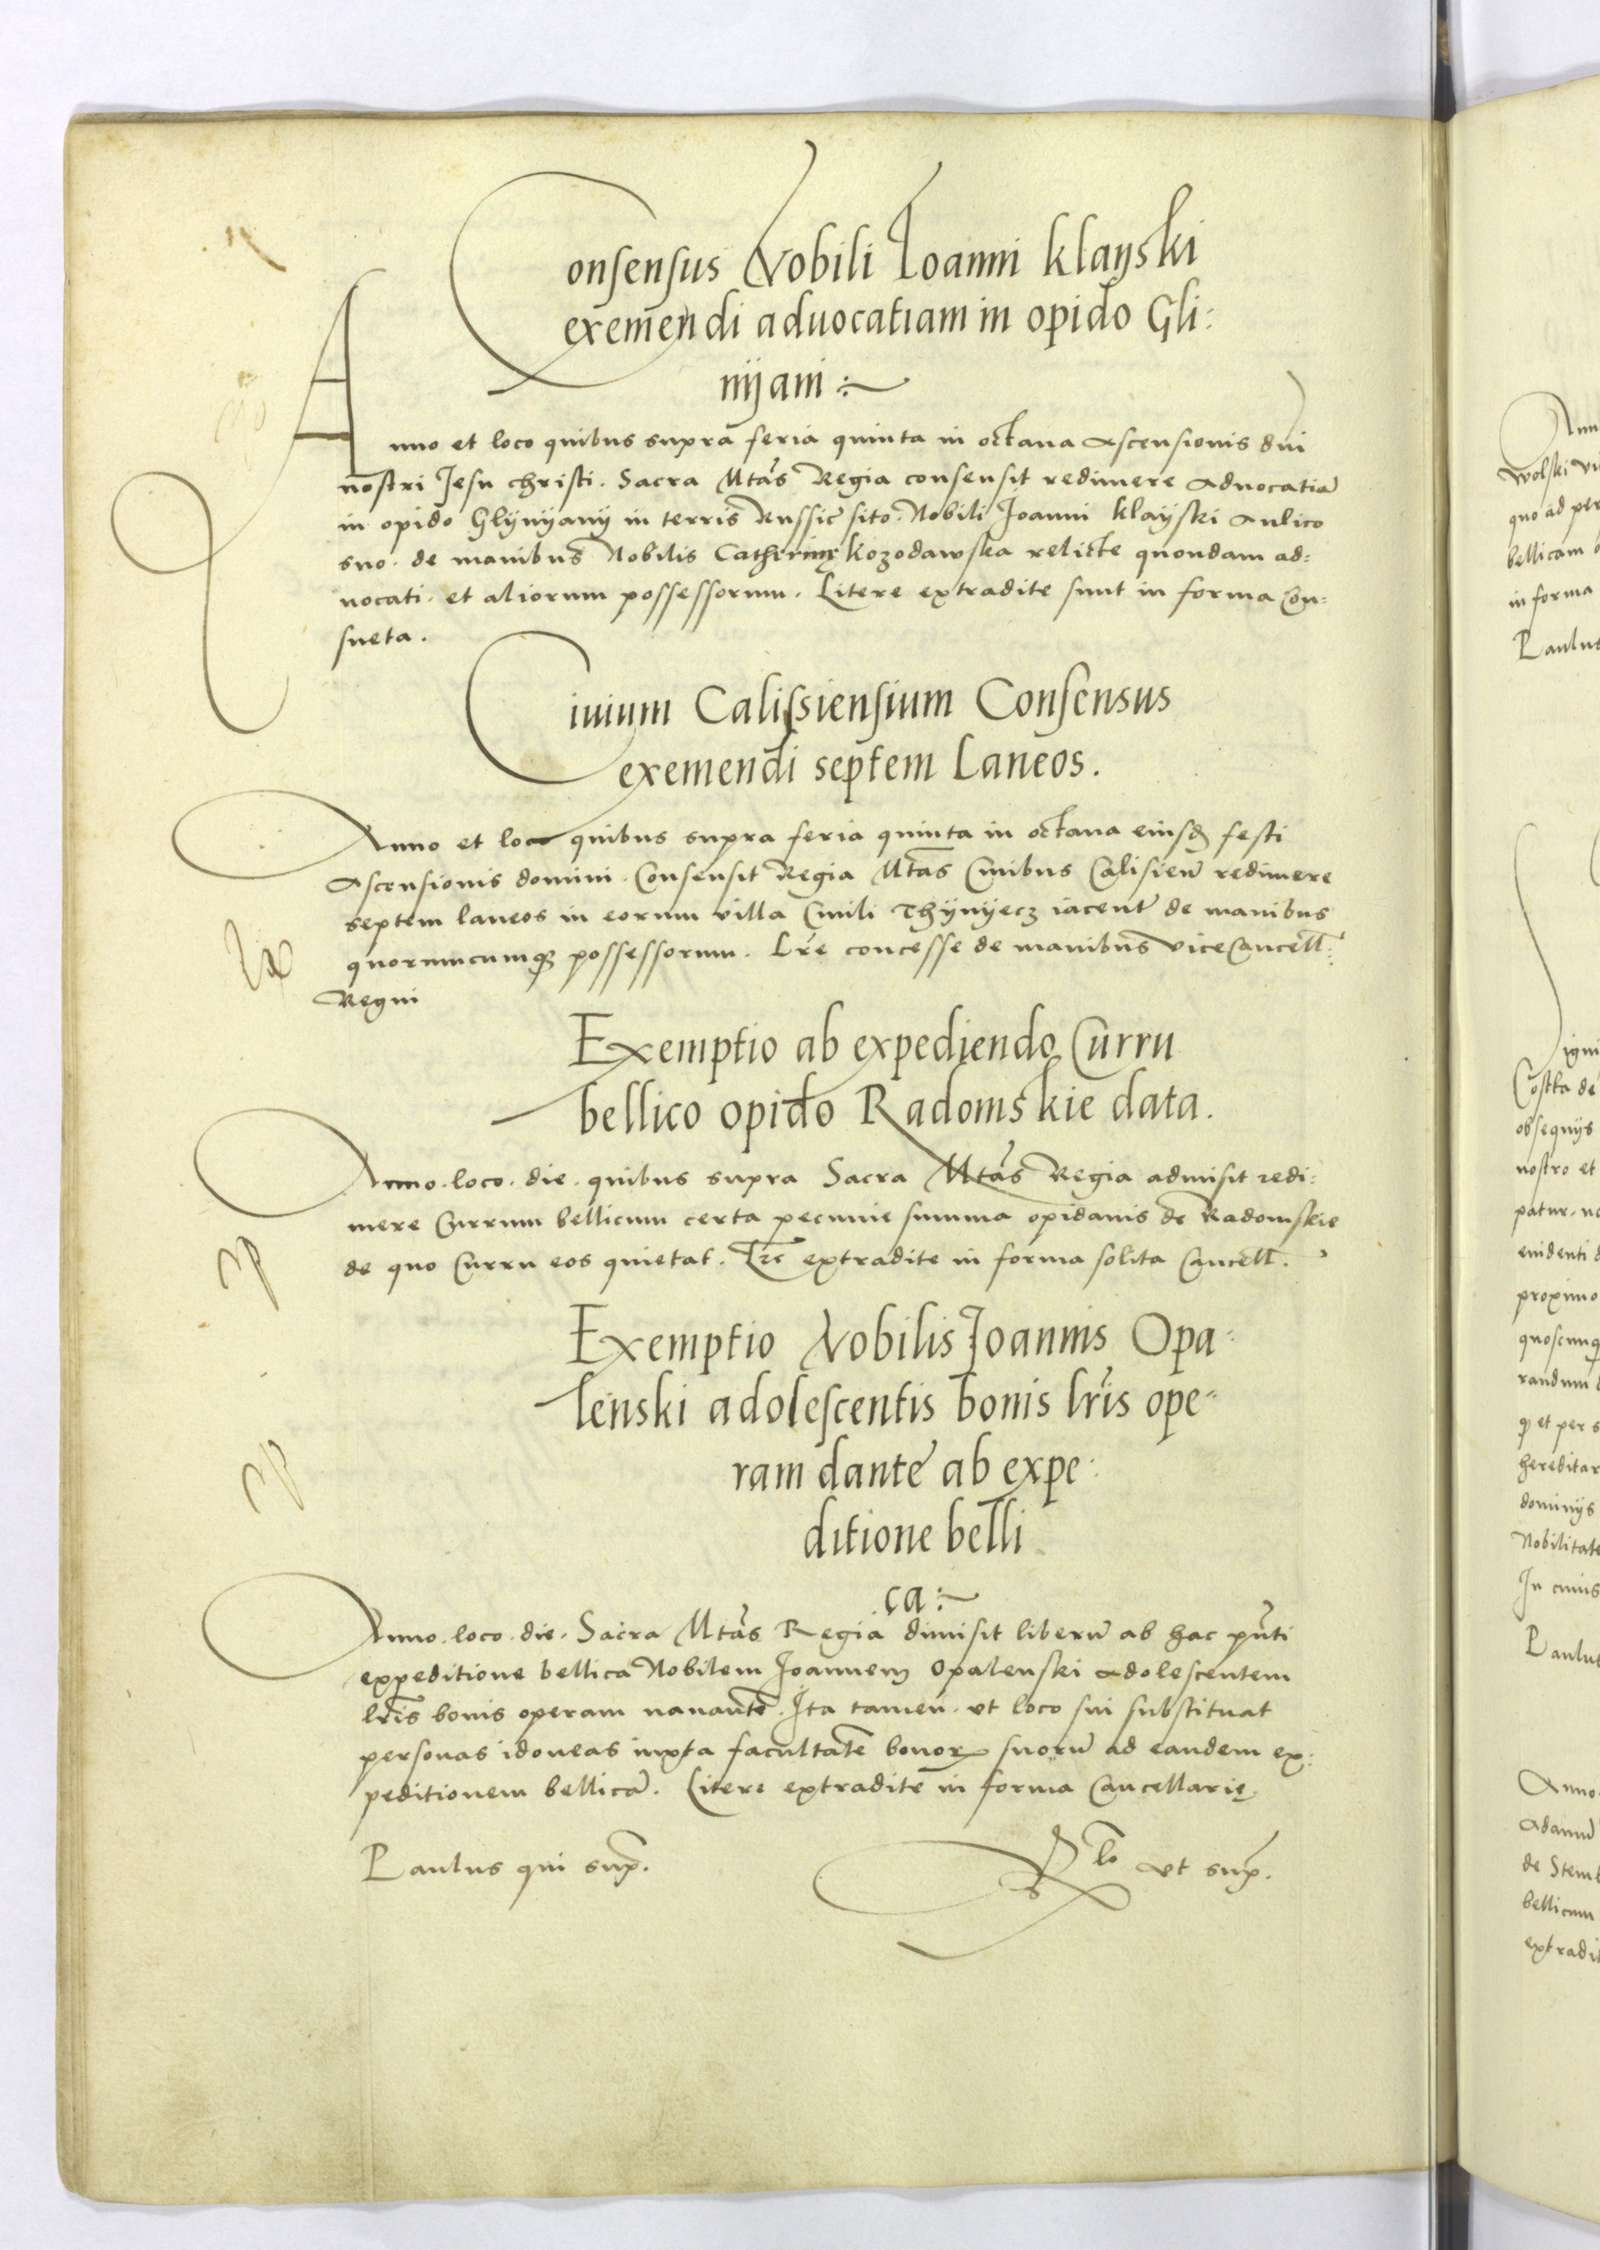 Consensus Nobili Joanni Klayski
exemendi aduocatiam in opido Gli:
niiani :~
Anno et loco quibus supra feria quinta in octaua Ascensionis dni
nostri Jesu christi. Sacra Mtas Regia consensit redimere Aduocatiā
in opido Glÿnÿanÿ in terris Russie sito. Nobili Joanni Klaÿski Aulico
suo. de manibus Nobilis Catherinę Kozodawska relicte quondam ad=
uocati. et aliorum possessorum. Litere extradite sunt in forma Con=
sueta.
Ciuium Calissiensium Consensus
exemendi septem Laneos.
Anno et loco quibus supra feria quinta in octaua eiusd festi
Ascensionis domini. Consensit Regia Mtas Ciuibus Calisien redimere
septem laneos in eorum villa Ciuili Thÿnÿecz iacent de manibus
quorumcumq possessorum. Lre concesse de manibus ViceCancell.
Regni
Exemptio ab expediendo Curru
bellico opido Radomskie data.
Anno. loco. die. quibus supra Sacra Mtas Regia admisit redi:
mere Currum bellicum certa pecunie summa opidanis de Radomskie
de quo Curru eos quietat. Lre extradite in forma solita Cancell.
Exemptio Nobilis Joannis Opa=
lenski adolescentis bonis lris ope=
ram dante ab expe:
ditione belli
ca :~
Anno. loco. die. Sacra Mtas Regia dimisit liberū ab hac pnti
expeditione bellica Nobilem Joannem Opalenski Adolescentem
lris bonis operam nauante. Ita tamen. vt loco sui substituat
personas idoneas iuxta facultatē bonor suorū ad eandem ex:
peditionem bellicā. Litere extradite in forma Cancellarię.
Paulus qui sup.
vt sup.
Wolski
quo ad per
bellicam
in forma
Paulus
Costka de
obsequÿs
nostro et
patur.
euidenti
proximo
quoscunq
randum
q et per s
hereditar
dominÿs
Nobilitate
In cuius
Paulus
Anno
Adamū
de Stem
bellicum
extradit